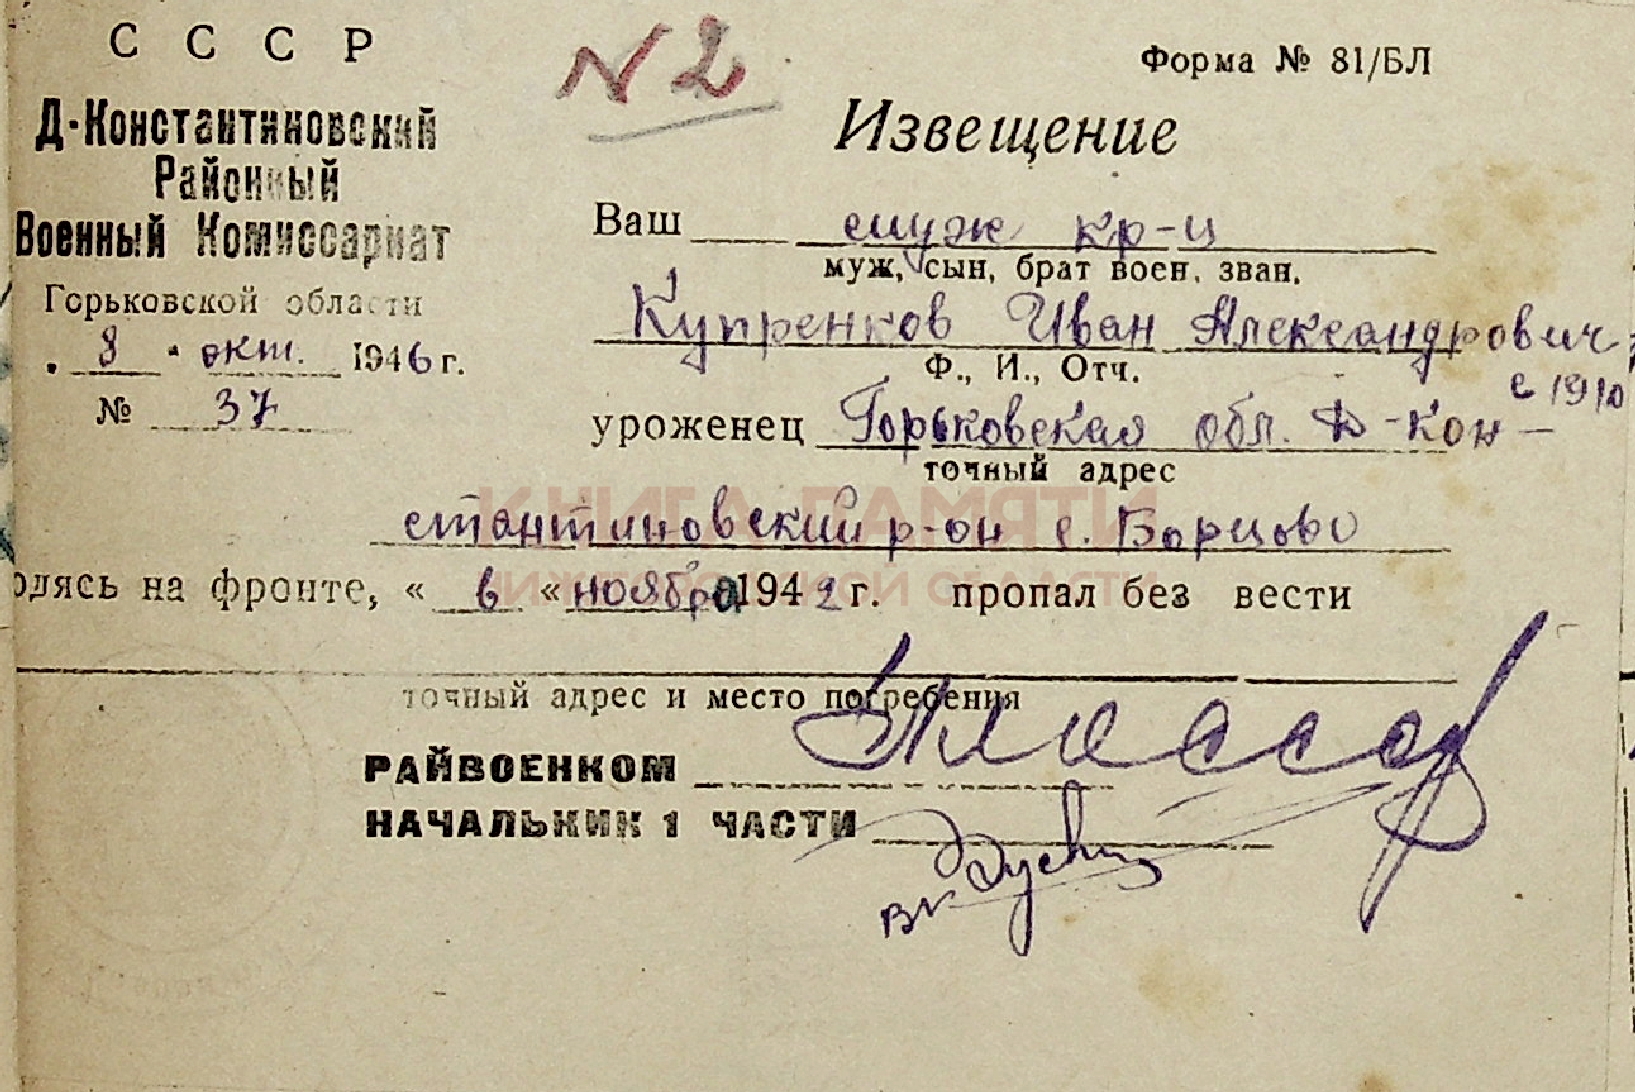 С С С Р
N 2
Форма № 81/БЛ
Д-Константиновский
Районный
Военный Комиссариат
Горьковской области
„ 8 " окт. 1946 г.
№ 37
Извещение
Ваш муж кр-ц
муж, сын, брат воен. зван.
Купренков Иван Александрович
Ф., И., Отч.
с 1910
уроженец Горьковская обл. Д-Кон-
точный адрес
стантиновский р-он с. Борцово
КНИГА ПАМЯТИ
НИЖЕГОРОДСКОЙ ОБЛАСТИ
одясь на фронте, « в « ноября 1942 г. пропал без вести
точный адрес и место погребения
РАЙВОЕНКОМ
НАЧАЛЬНИК 1 ЧАСТИ